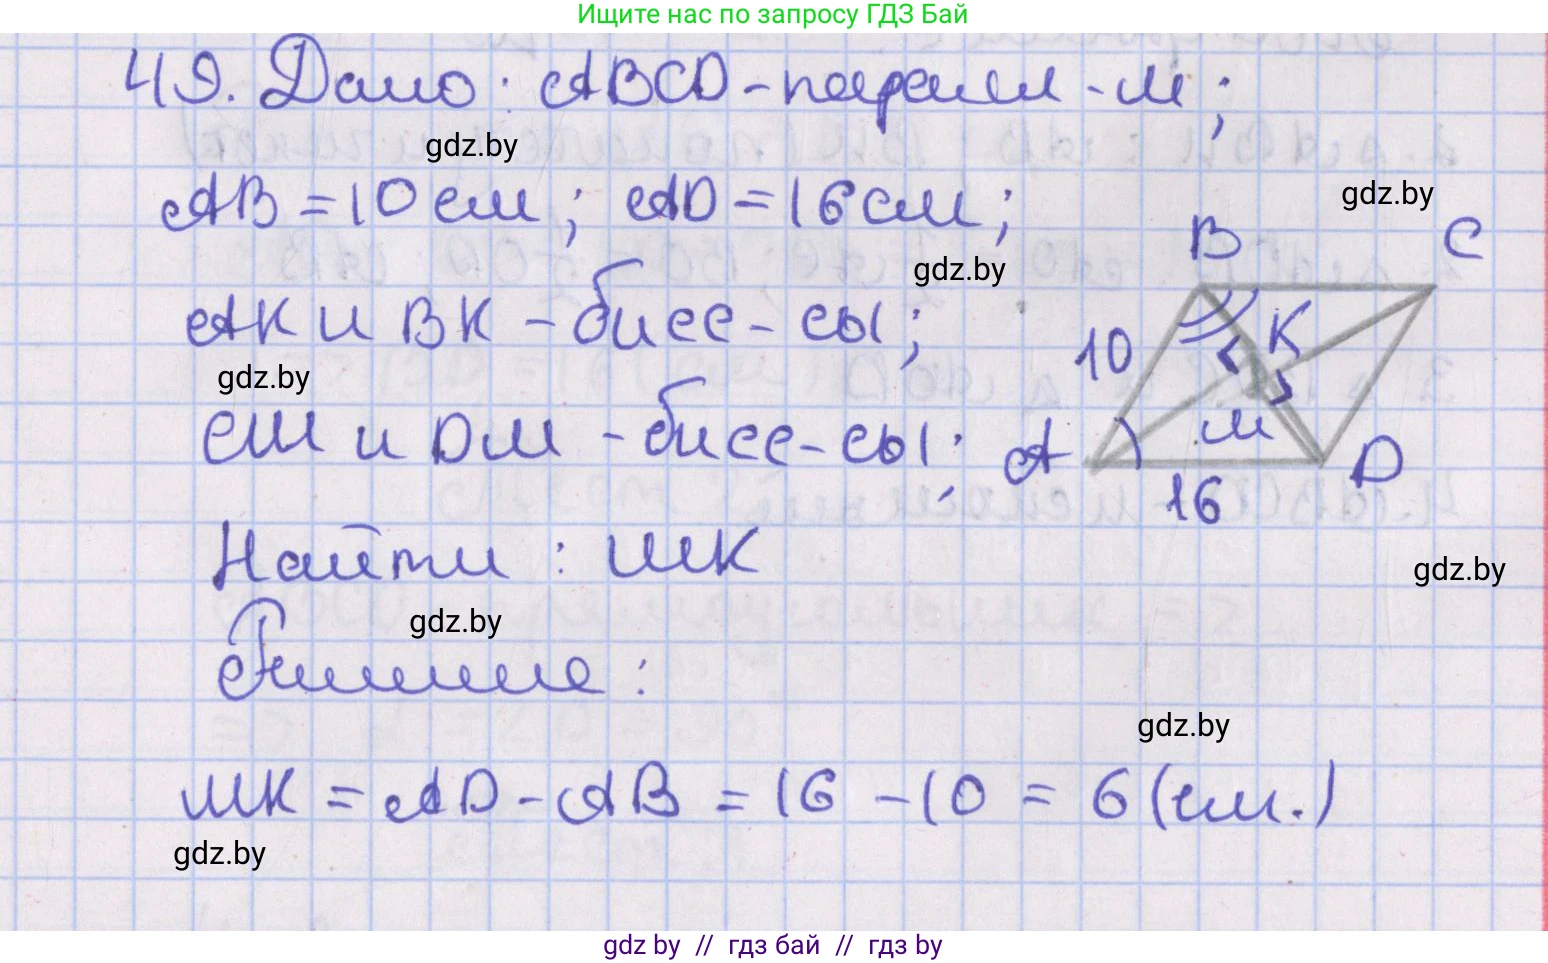 Ищите нас по запросу ГДЗ Бай
49. Дано: ABCD - паралл-м;
gdz.by
AB = 10 см; AD = 16 см;
gdz.by
B C
gdz.by
AK и BK - бисс-сы;
10 K
gdz.by
CM и DM - бисс-сы;
A M D
16
Найти: MK
gdz.by
gdz.by
Решение:
gdz.by
MK = AD - AB = 16 - 10 = 6 (см.)
gdz.by
gdz by // гдз бай // гдз by